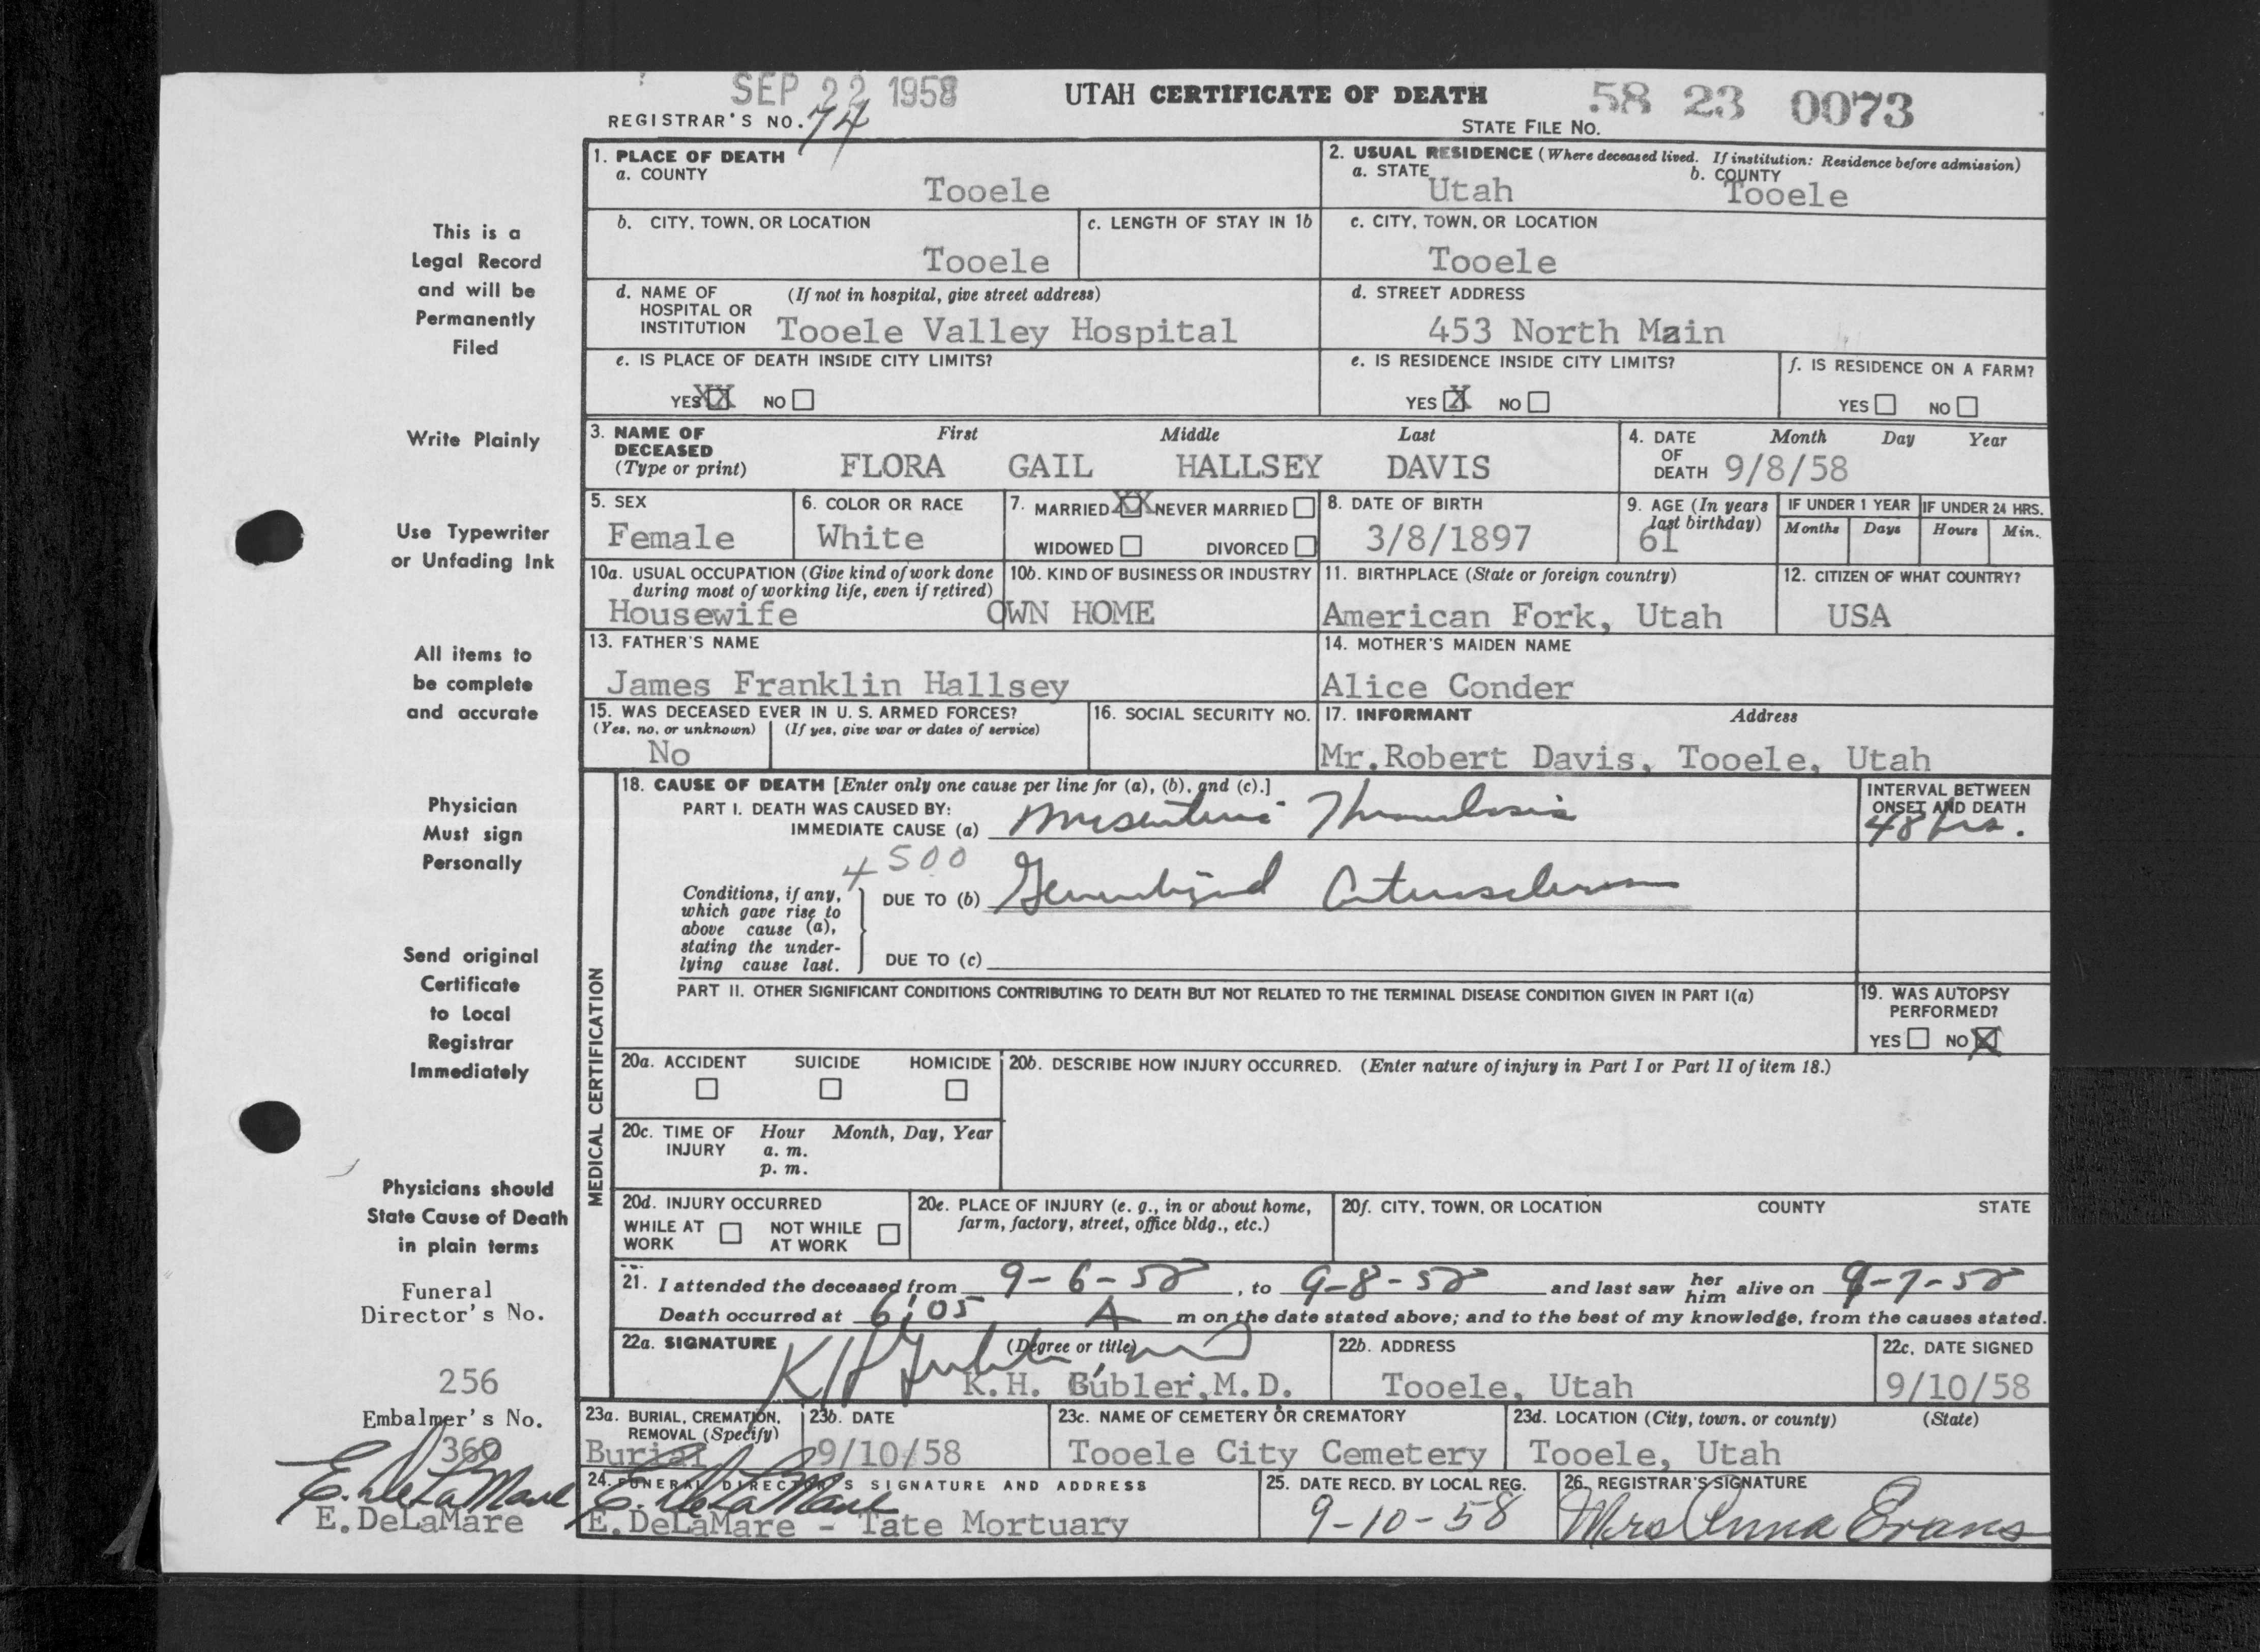 SEP 22 1958
UTAH CERTIFICATE OF DEATH
58 23 0073
REGISTRAR'S NO. 74
STATE FILE NO.
1. PLACE OF DEATH
a. COUNTY
Tooele
2. USUAL RESIDENCE (Where deceased lived. If institution: Residence before admission)
a. STATE
Utah
b. COUNTY
Tooele
b. CITY, TOWN, OR LOCATION
Tooele
c. LENGTH OF STAY IN 1b
c. CITY, TOWN, OR LOCATION
Tooele
d. NAME OF HOSPITAL OR INSTITUTION
(If not in hospital, give street address)
Tooele Valley Hospital
d. STREET ADDRESS
453 North Main
e. IS PLACE OF DEATH INSIDE CITY LIMITS?
YES XX NO
e. IS RESIDENCE INSIDE CITY LIMITS?
YES X NO
f. IS RESIDENCE ON A FARM?
YES NO
3. NAME OF DECEASED (Type or print)
First Middle Last
FLORA GAIL HALLSEY DAVIS
4. DATE OF DEATH
Month Day Year
9/8/58
5. SEX
Female
6. COLOR OR RACE
White
7. MARRIED XX NEVER MARRIED
WIDOWED DIVORCED
8. DATE OF BIRTH
3/8/1897
9. AGE (In years last birthday)
61
IF UNDER 1 YEAR
Months Days
IF UNDER 24 HRS.
Hours Min.
10a. USUAL OCCUPATION (Give kind of work done during most of working life, even if retired)
Housewife
10b. KIND OF BUSINESS OR INDUSTRY
OWN HOME
11. BIRTHPLACE (State or foreign country)
American Fork, Utah
12. CITIZEN OF WHAT COUNTRY?
USA
13. FATHER'S NAME
James Franklin Hallsey
14. MOTHER'S MAIDEN NAME
Alice Conder
15. WAS DECEASED EVER IN U. S. ARMED FORCES?
(Yes, no, or unknown) (If yes, give war or dates of service)
No
16. SOCIAL SECURITY NO.
17. INFORMANT Address
Mr. Robert Davis, Tooele, Utah
MEDICAL CERTIFICATION
18. CAUSE OF DEATH [Enter only one cause per line for (a), (b), and (c).]
PART I. DEATH WAS CAUSED BY:
IMMEDIATE CAUSE (a) Mesenteric Thrombosis
INTERVAL BETWEEN ONSET AND DEATH
48 hrs.
4500
Conditions, if any, which gave rise to above cause (a), stating the underlying cause last.
DUE TO (b) Generalized Arteriosclerosis
DUE TO (c)
PART II. OTHER SIGNIFICANT CONDITIONS CONTRIBUTING TO DEATH BUT NOT RELATED TO THE TERMINAL DISEASE CONDITION GIVEN IN PART I(a)
19. WAS AUTOPSY PERFORMED?
YES NO X
20a. ACCIDENT SUICIDE HOMICIDE
20b. DESCRIBE HOW INJURY OCCURRED. (Enter nature of injury in Part I or Part II of item 18.)
20c. TIME OF INJURY
Hour Month, Day, Year
a. m.
p. m.
20d. INJURY OCCURRED
WHILE AT WORK NOT WHILE AT WORK
20e. PLACE OF INJURY (e. g., in or about home, farm, factory, street, office bldg., etc.)
20f. CITY, TOWN, OR LOCATION COUNTY STATE
21. I attended the deceased from 9-6-58, to 9-8-58 and last saw her him alive on 9-7-58
Death occurred at 6:05 A m on the date stated above; and to the best of my knowledge, from the causes stated.
22a. SIGNATURE (Degree or title)
K H Gubler MD
K.H. Gubler, M.D.
22b. ADDRESS
Tooele, Utah
22c. DATE SIGNED
9/10/58
23a. BURIAL, CREMATION, REMOVAL (Specify)
Burial
23b. DATE
9/10/58
23c. NAME OF CEMETERY OR CREMATORY
Tooele City Cemetery
23d. LOCATION (City, town, or county) (State)
Tooele, Utah
24. FUNERAL DIRECTOR'S SIGNATURE AND ADDRESS
E. DeLaMare
E.DeLaMare - Tate Mortuary
25. DATE RECD. BY LOCAL REG.
9-10-58
26. REGISTRAR'S SIGNATURE
Mrs Anna Evans
This is a
Legal Record
and will be
Permanently
Filed
Write Plainly
Use Typewriter
or Unfading Ink
All items to
be complete
and accurate
Physician
Must sign
Personally
Send original
Certificate
to Local
Registrar
Immediately
Physicians should
State Cause of Death
in plain terms
Funeral
Director's No.
256
Embalmer's No.
360
E. DeLaMare
E.DeLaMare